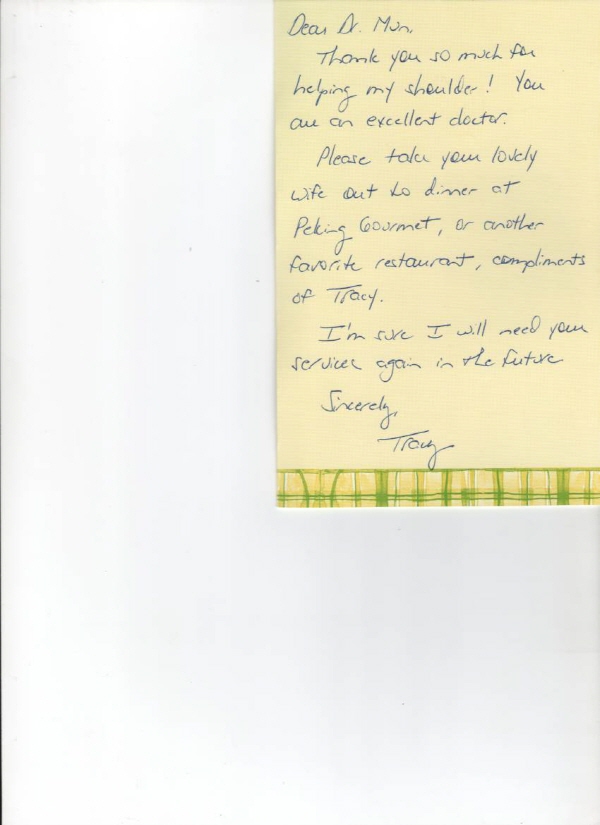 Dear Dr. Mun,
Thank you so much for
helping my shoulder! You
are an excellent doctor.
Please take your lovely
wife out to dinner at
Peking Gourmet, or another
favorite restaurant, compliments
of Tracy.
I'm sure I will need your
services again in the future
Sincerely,
Tracy